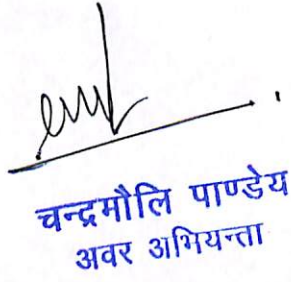 चन्द्रमौलि पाण्डेय
अवर अभियन्ता